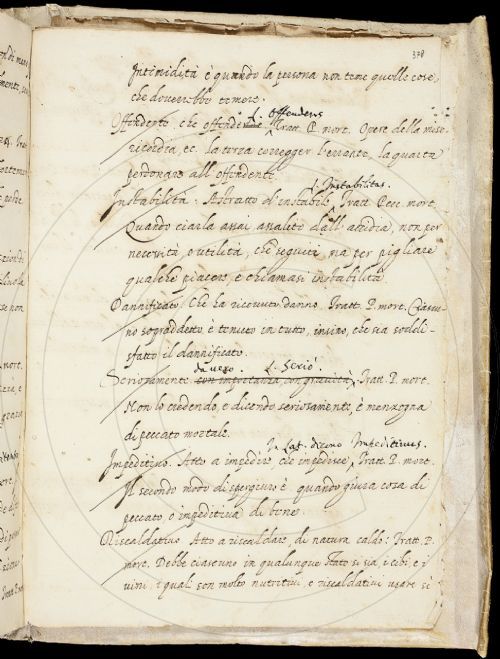 378
Intimidità è quando la persona non teme quelle cose,
che dovrebbe temere.
L. Offendens
Offendente, che offende Tratt. P. mort. Opere della mise-
ricordia, ec. la terza correggere l'errante, la quarta
perdonare all'offendente.
L. Instabilitas.
Instabilità. Astratto di instabile, Tratt. Pecc. mort.
Quando ciarla assai assalito dall'accidia, non per
necessità, o utilità, che seguiti, ma per pigliare
qualche piacere, e chiamasi instabilità
Dannificato. Che ha ricevuto danno. Tratt. P. mort. Ciascu-
no sopraddetto, è tenuto in tutto, insino, che sia soddi-
sfatto il dannificato.
da vero. L. Seriò.
Seriosamente. con importanza, con gravità, Tratt. P. mort.
Non lo credendo, e dicendo seriosamente, è menzogna
di peccato mortale.
In Lat. dicono Impeditivus.
Impeditivo. Atto a impedire, che impedisce, Tratt. P. mort.
Il secondo modo di spergiuro è quando giura cosa di
peccato, o impeditiva di bene.
Riscaldativo Atto a riscaldare, di natura caldo: Tratt. P.
mort. Debbe ciascuno in qualunque stato si sia, i cibi, e i
vini, i quali son molto nutritivi, e riscaldativi usare sì